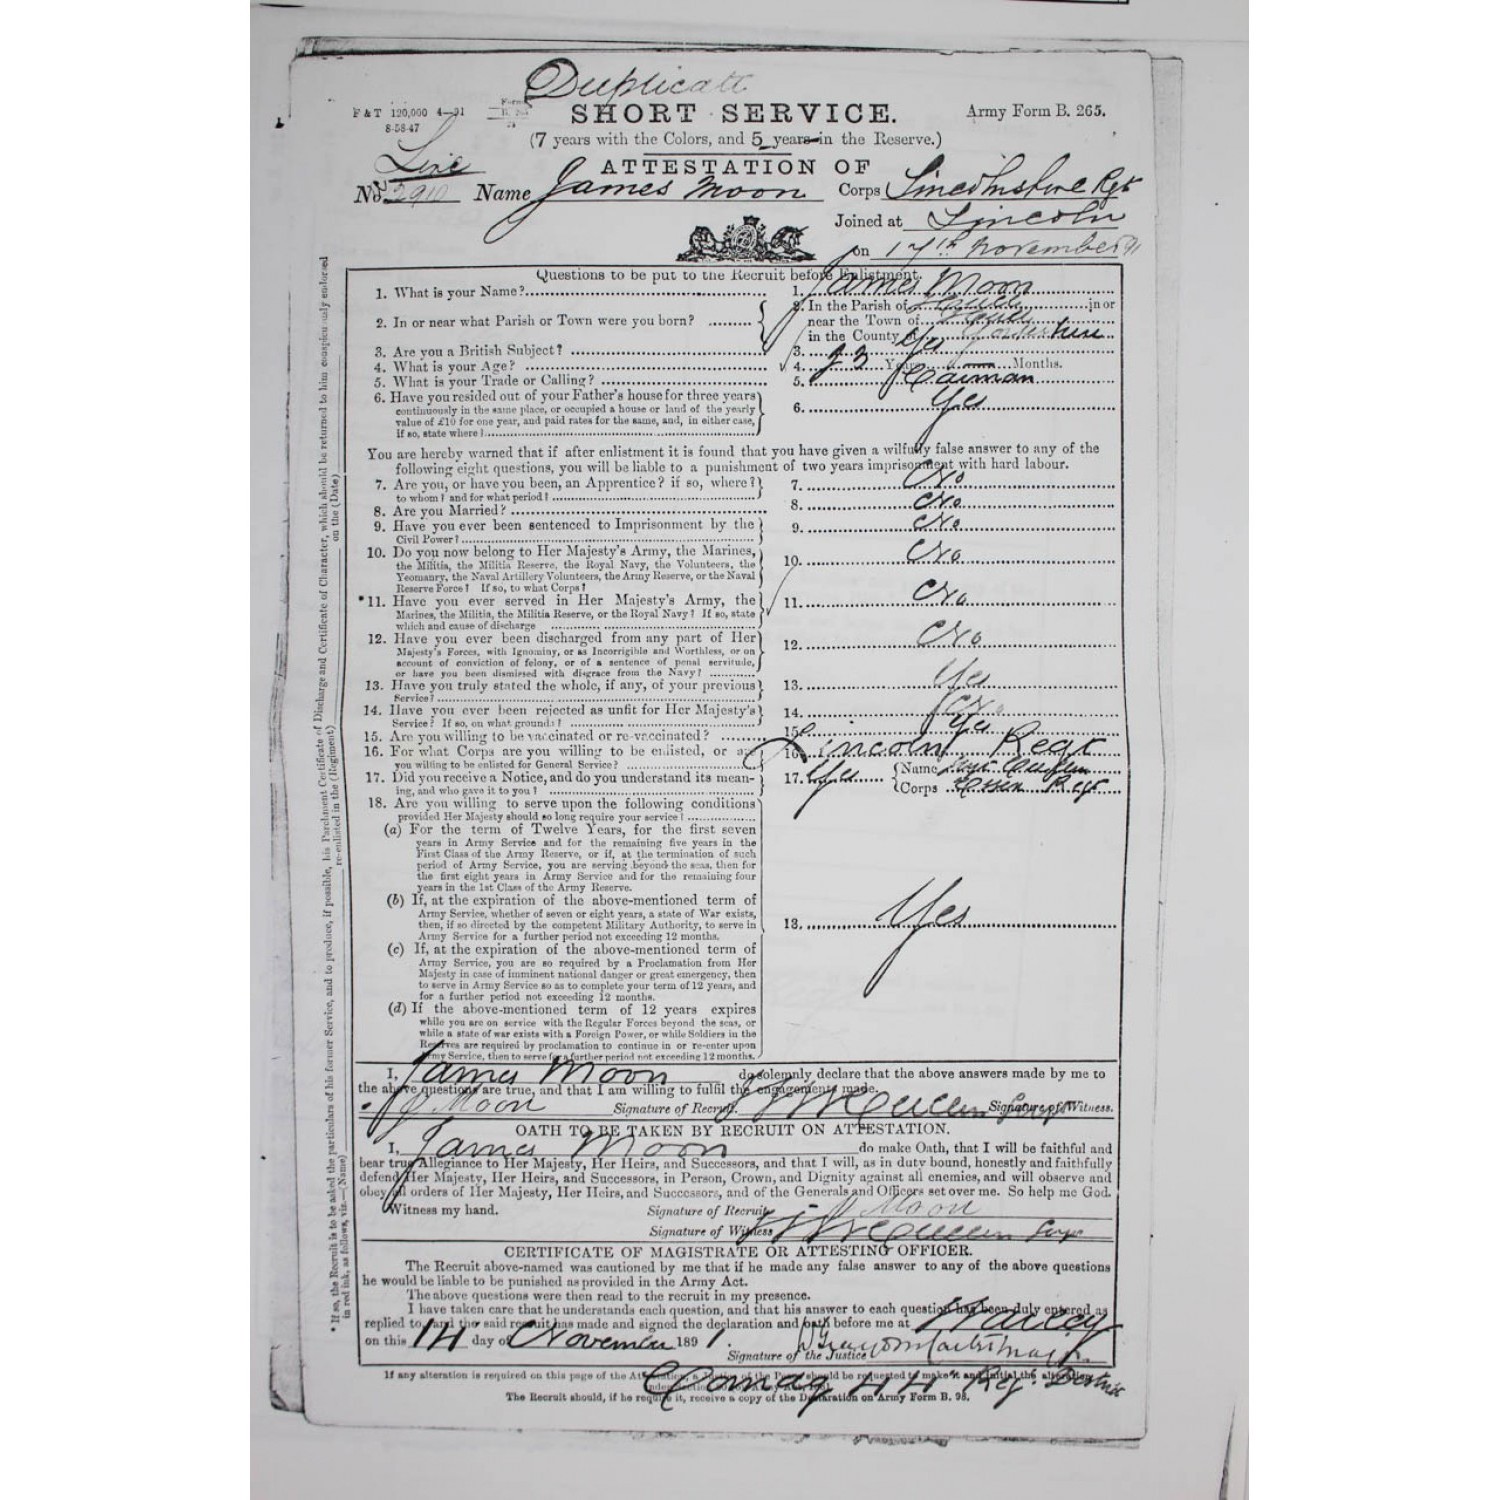 Duplicate
F & T 120,000 4—91
8-58-47
SHORT SERVICE.
Army Form B. 265.
(7 years with the Colors, and 5 years in the Reserve.)
Line
ATTESTATION OF
No. 2910 Name James Moon Corps Lincolnshire Regt
Joined at Lincoln
on 17th November 91
Questions to be put to the Recruit before Enlistment.
1. What is your Name? 1. James Moon
2. In or near what Parish or Town were you born? 2. In the Parish of in or
near the Town of
in the County of
3. Are you a British Subject? 3. Yes
4. What is your Age? 4. 23 Years Months.
5. What is your Trade or Calling? 5. Carman
6. Have you resided out of your Father's house for three years
continuously in the same place, or occupied a house or land of the yearly
value of £10 for one year, and paid rates for the same, and, in either case,
if so, state where? 6. Yes
You are hereby warned that if after enlistment it is found that you have given a wilfully false answer to any of the
following eight questions, you will be liable to a punishment of two years imprisonment with hard labour.
7. Are you, or have you been, an Apprentice? if so, where?
to whom? and for what period? 7. No
8. Are you Married? 8. No
9. Have you ever been sentenced to Imprisonment by the
Civil Power? 9. No
10. Do you now belong to Her Majesty's Army, the Marines,
the Militia, the Militia Reserve, the Royal Navy, the Volunteers, the
Yeomanry, the Naval Artillery Volunteers, the Army Reserve, or the Naval
Reserve Force? If so, to what Corps? 10. No
*11. Have you ever served in Her Majesty's Army, the
Marines, the Militia, the Militia Reserve, or the Royal Navy? If so, state
which and cause of discharge 11. No
12. Have you ever been discharged from any part of Her
Majesty's Forces, with Ignominy, or as Incorrigible and Worthless, or on
account of conviction of felony, or of a sentence of penal servitude,
or have you been dismissed with disgrace from the Navy? 12. No
13. Have you truly stated the whole, if any, of your previous
Service? 13. Yes
14. Have you ever been rejected as unfit for Her Majesty's
Service? If so, on what grounds? 14. No
15. Are you willing to be vaccinated or re-vaccinated? 15. Yes
16. For what Corps are you willing to be enlisted, or are
you willing to be enlisted for General Service? 16. Lincoln Regt
17. Did you receive a Notice, and do you understand its mean-
ing, and who gave it to you? 17. Yes Name
Corps Essex Regt
18. Are you willing to serve upon the following conditions
provided Her Majesty should so long require your service?
(a) For the term of Twelve Years, for the first seven
years in Army Service and for the remaining five years in the
First Class of the Army Reserve, or if, at the termination of such
period of Army Service, you are serving beyond the seas, then for
the first eight years in Army Service and for the remaining four
years in the 1st Class of the Army Reserve.
(b) If, at the expiration of the above-mentioned term of
Army Service, whether of seven or eight years, a state of War exists,
then, if so directed by the competent Military Authority, to serve in
Army Service for a further period not exceeding 12 months.
18. Yes
(c) If, at the expiration of the above-mentioned term of
Army Service, you are so required by a Proclamation from Her
Majesty in case of imminent national danger or great emergency, then
to serve in Army Service so as to complete your term of 12 years, and
for a further period not exceeding 12 months.
(d) If the above-mentioned term of 12 years expires
while you are on service with the Regular Forces beyond the seas, or
while a state of war exists with a Foreign Power, or while Soldiers in the
Reserves are required by proclamation to continue in or re-enter upon
Army Service, then to serve for a further period not exceeding 12 months.
I, James Moon do solemnly declare that the above answers made by me to
the above questions are true, and that I am willing to fulfil the engagements made.
J Moon Signature of Recruit. Signature of Witness.
OATH TO BE TAKEN BY RECRUIT ON ATTESTATION.
I, James Moon do make Oath, that I will be faithful and
bear true Allegiance to Her Majesty, Her Heirs, and Successors, and that I will, as in duty bound, honestly and faithfully
defend Her Majesty, Her Heirs, and Successors, in Person, Crown, and Dignity against all enemies, and will observe and
obey all orders of Her Majesty, Her Heirs, and Successors, and of the Generals and Officers set over me. So help me God.
Witness my hand. Signature of Recruit J Moon
Signature of Witness
CERTIFICATE OF MAGISTRATE OR ATTESTING OFFICER.
The Recruit above-named was cautioned by me that if he made any false answer to any of the above questions
he would be liable to be punished as provided in the Army Act.
The above questions were then read to the recruit in my presence.
I have taken care that he understands each question, and that his answer to each question has been duly entered as
replied to, and the said recruit has made and signed the declaration and oath before me at Warley
on this 14 day of November 1891.
Signature of the Justice
If any alteration is required on this page of the Attestation, a Justice of the Peace should be requested to make it and initial the alteration
Comdg 44th Reg. District
The Recruit should, if he require it, receive a copy of the Declaration on Army Form B. 98.
* If so, the Recruit is to be asked the particulars of his former Service, and to produce, if possible, his Parchment Certificate of Discharge and Certificate of Character, which should be returned to him conspicuously endorsed
in red ink, as follows, viz.—(Name) re-enlisted in the (Regiment) on the (Date)